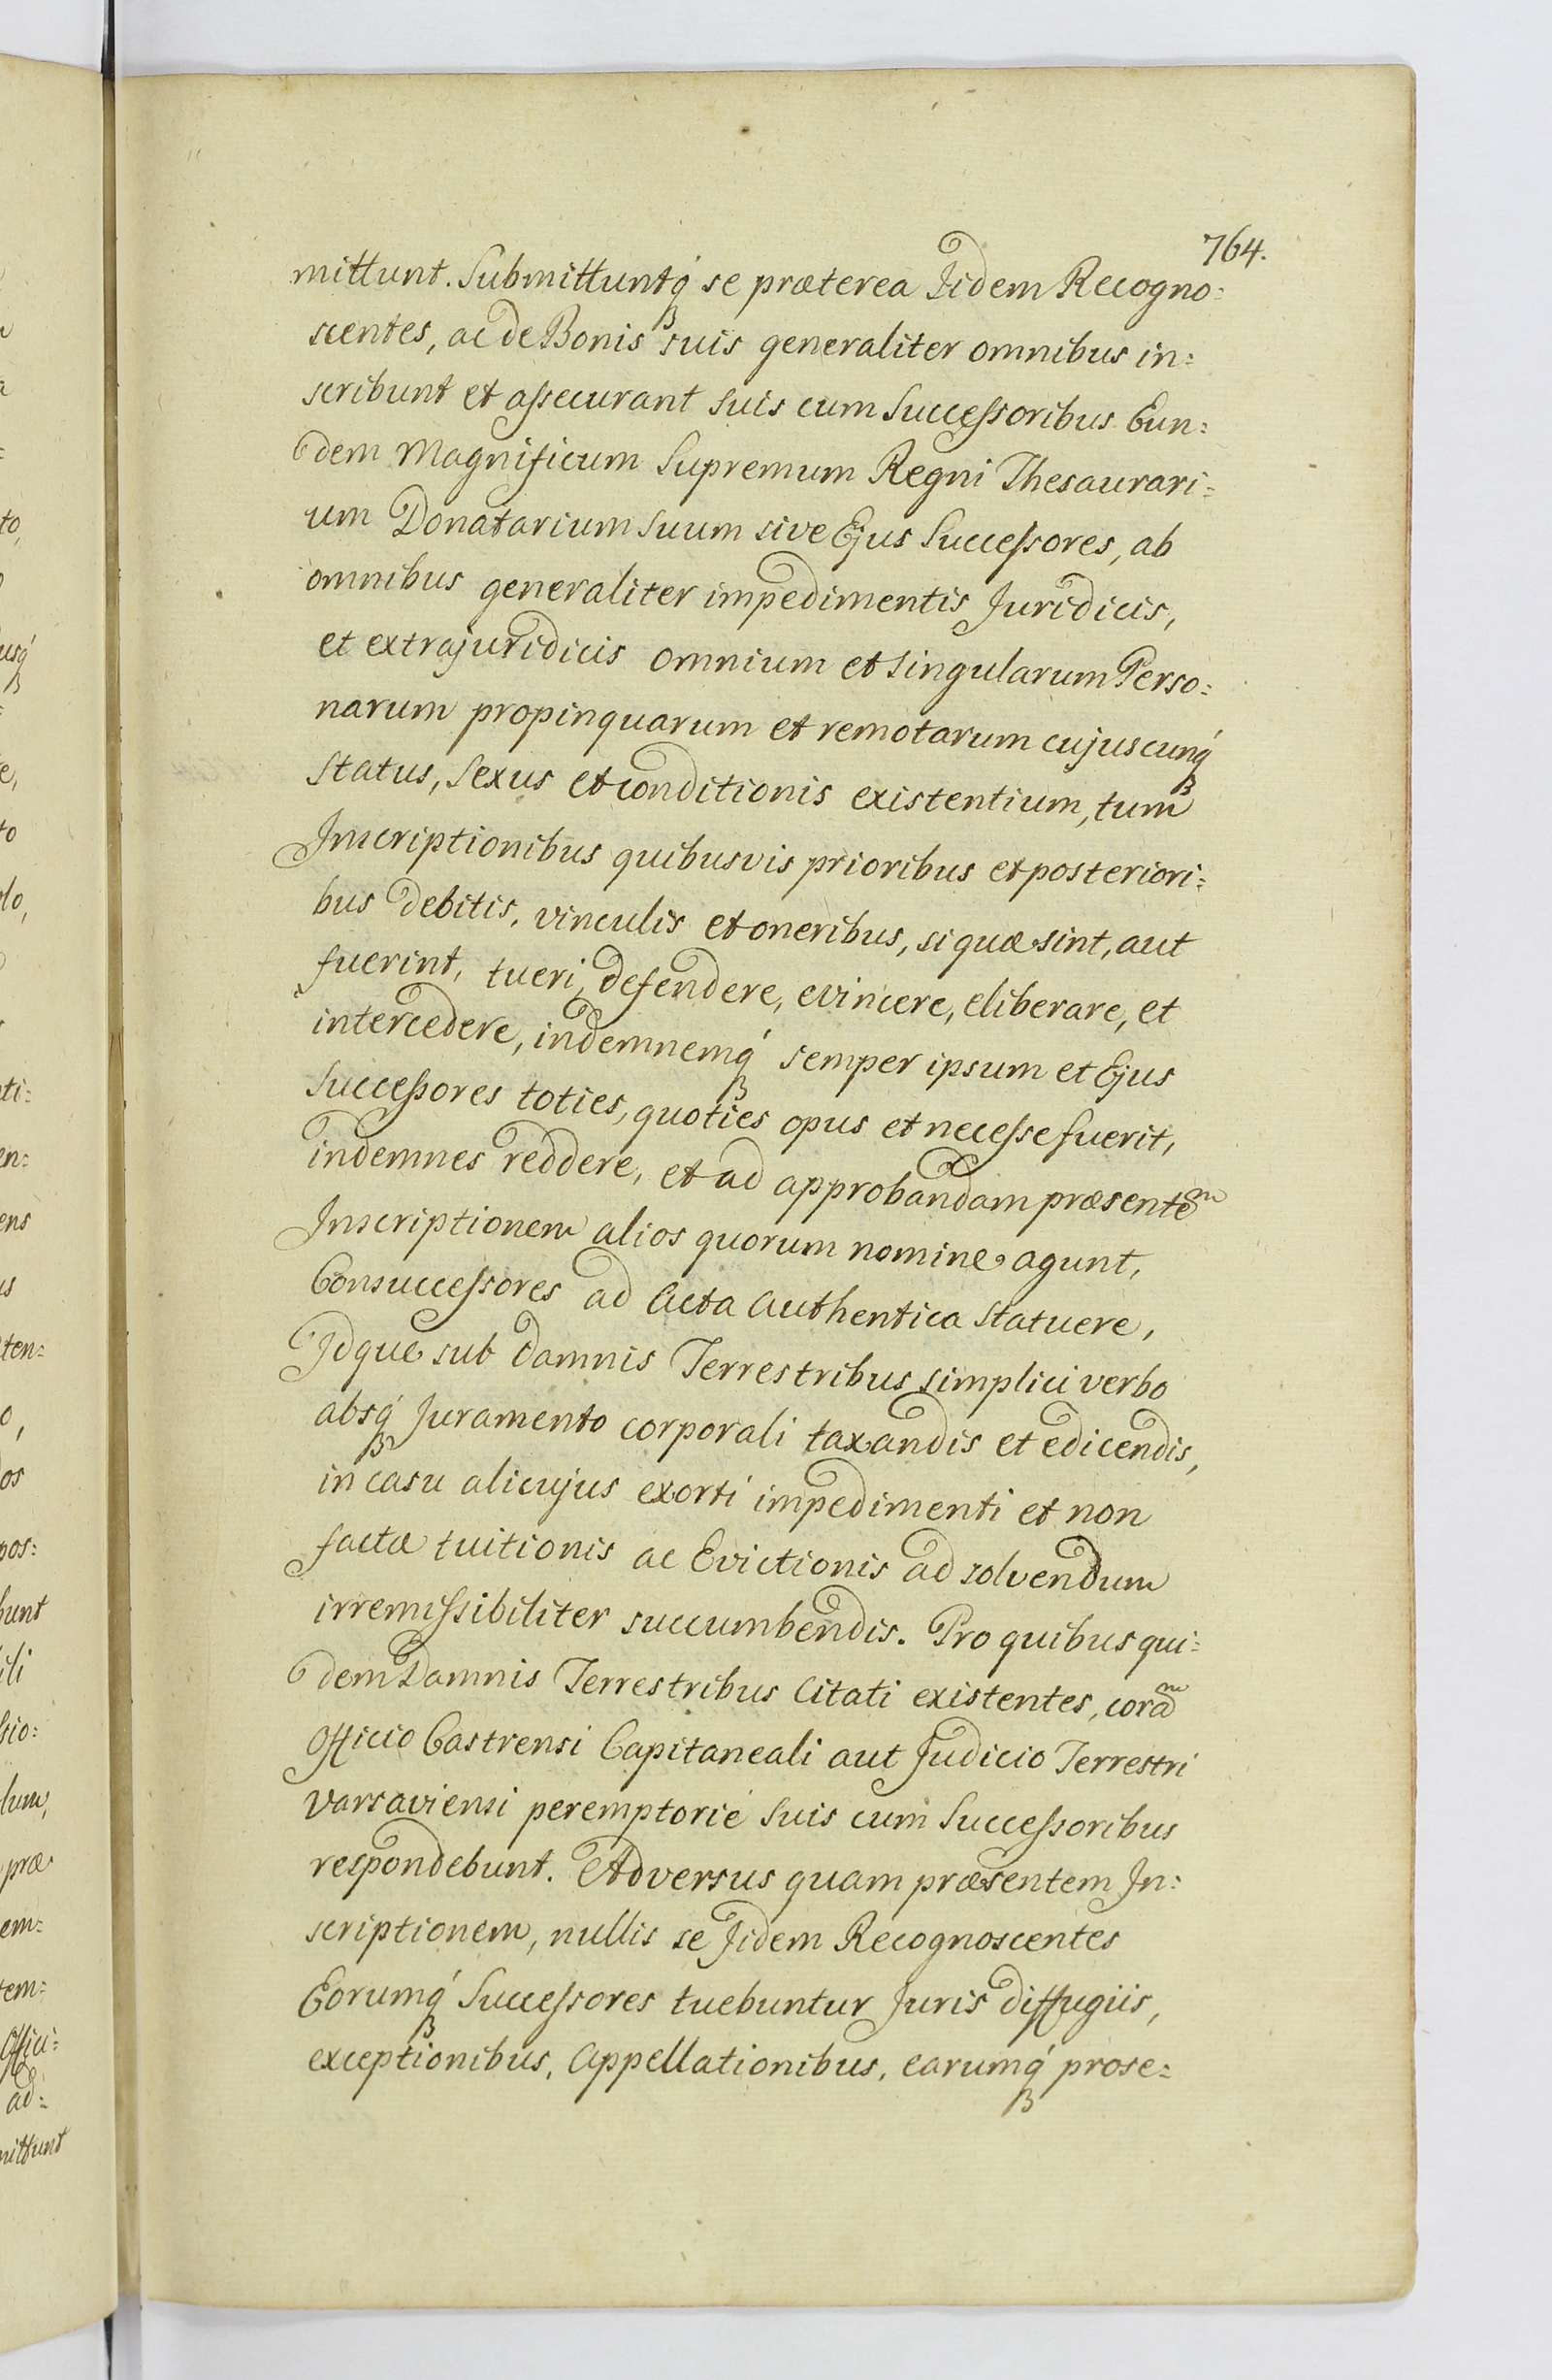 764.
mittunt. Submittuntq́ se præterea Jidem Recogno:
scentes, ac de Bonis suis generaliter omnibus in:
scribunt et assecurant suis cum Successoribus Eun:
dem Magnificum Supremum Regni Thesaurari:
um Donatarium suum sive Ejus Successores, ab
omnibus generaliter impedimentis Juridicis,
et extrajuridicis omnium et singularum Perso:
narum propinquarum et remotarum cujuscunq́
status, sexus et conditionis existentium, tum
Inscriptionibus quibusvis prioribus et posteriori:
bus debitis, vinculis et oneribus, si quæ sint, aut
fuerint, tueri, defendere, evincere, eliberare, et
intercedere, indemnemq́ semper ipsum et Ejus
Successores toties, quoties opus et necesse fuerit,
indemnes reddere, et ad approbandam præsentem
Inscriptionem alios quorum nomine agunt,
Consuccessores ad Acta Authentica statuere,
Idque sub damnis Terrestribus simplici verbo
absq́ Juramento corporali taxandis et edicendis,
in casu alicujus exorti impedimenti et non
factæ tuitionis ac Evictionis ad solvendum
irremissibiliter succumbendis. Pro quibus qui:
dem Damnis Terrestribus Citati existentes, coram
Officio Castrensi Capitaneali aut Judicio Terrestri
Varsaviensi peremptorié suis cum Successoribus
respondebunt. Adversus quam præsentem In:
scriptionem, nullis se Jidem Recognoscentes
Eorumq́ Successores tuebuntur Juris diffugiis,
exceptionibus, Appellationibus, earumq́ prose: